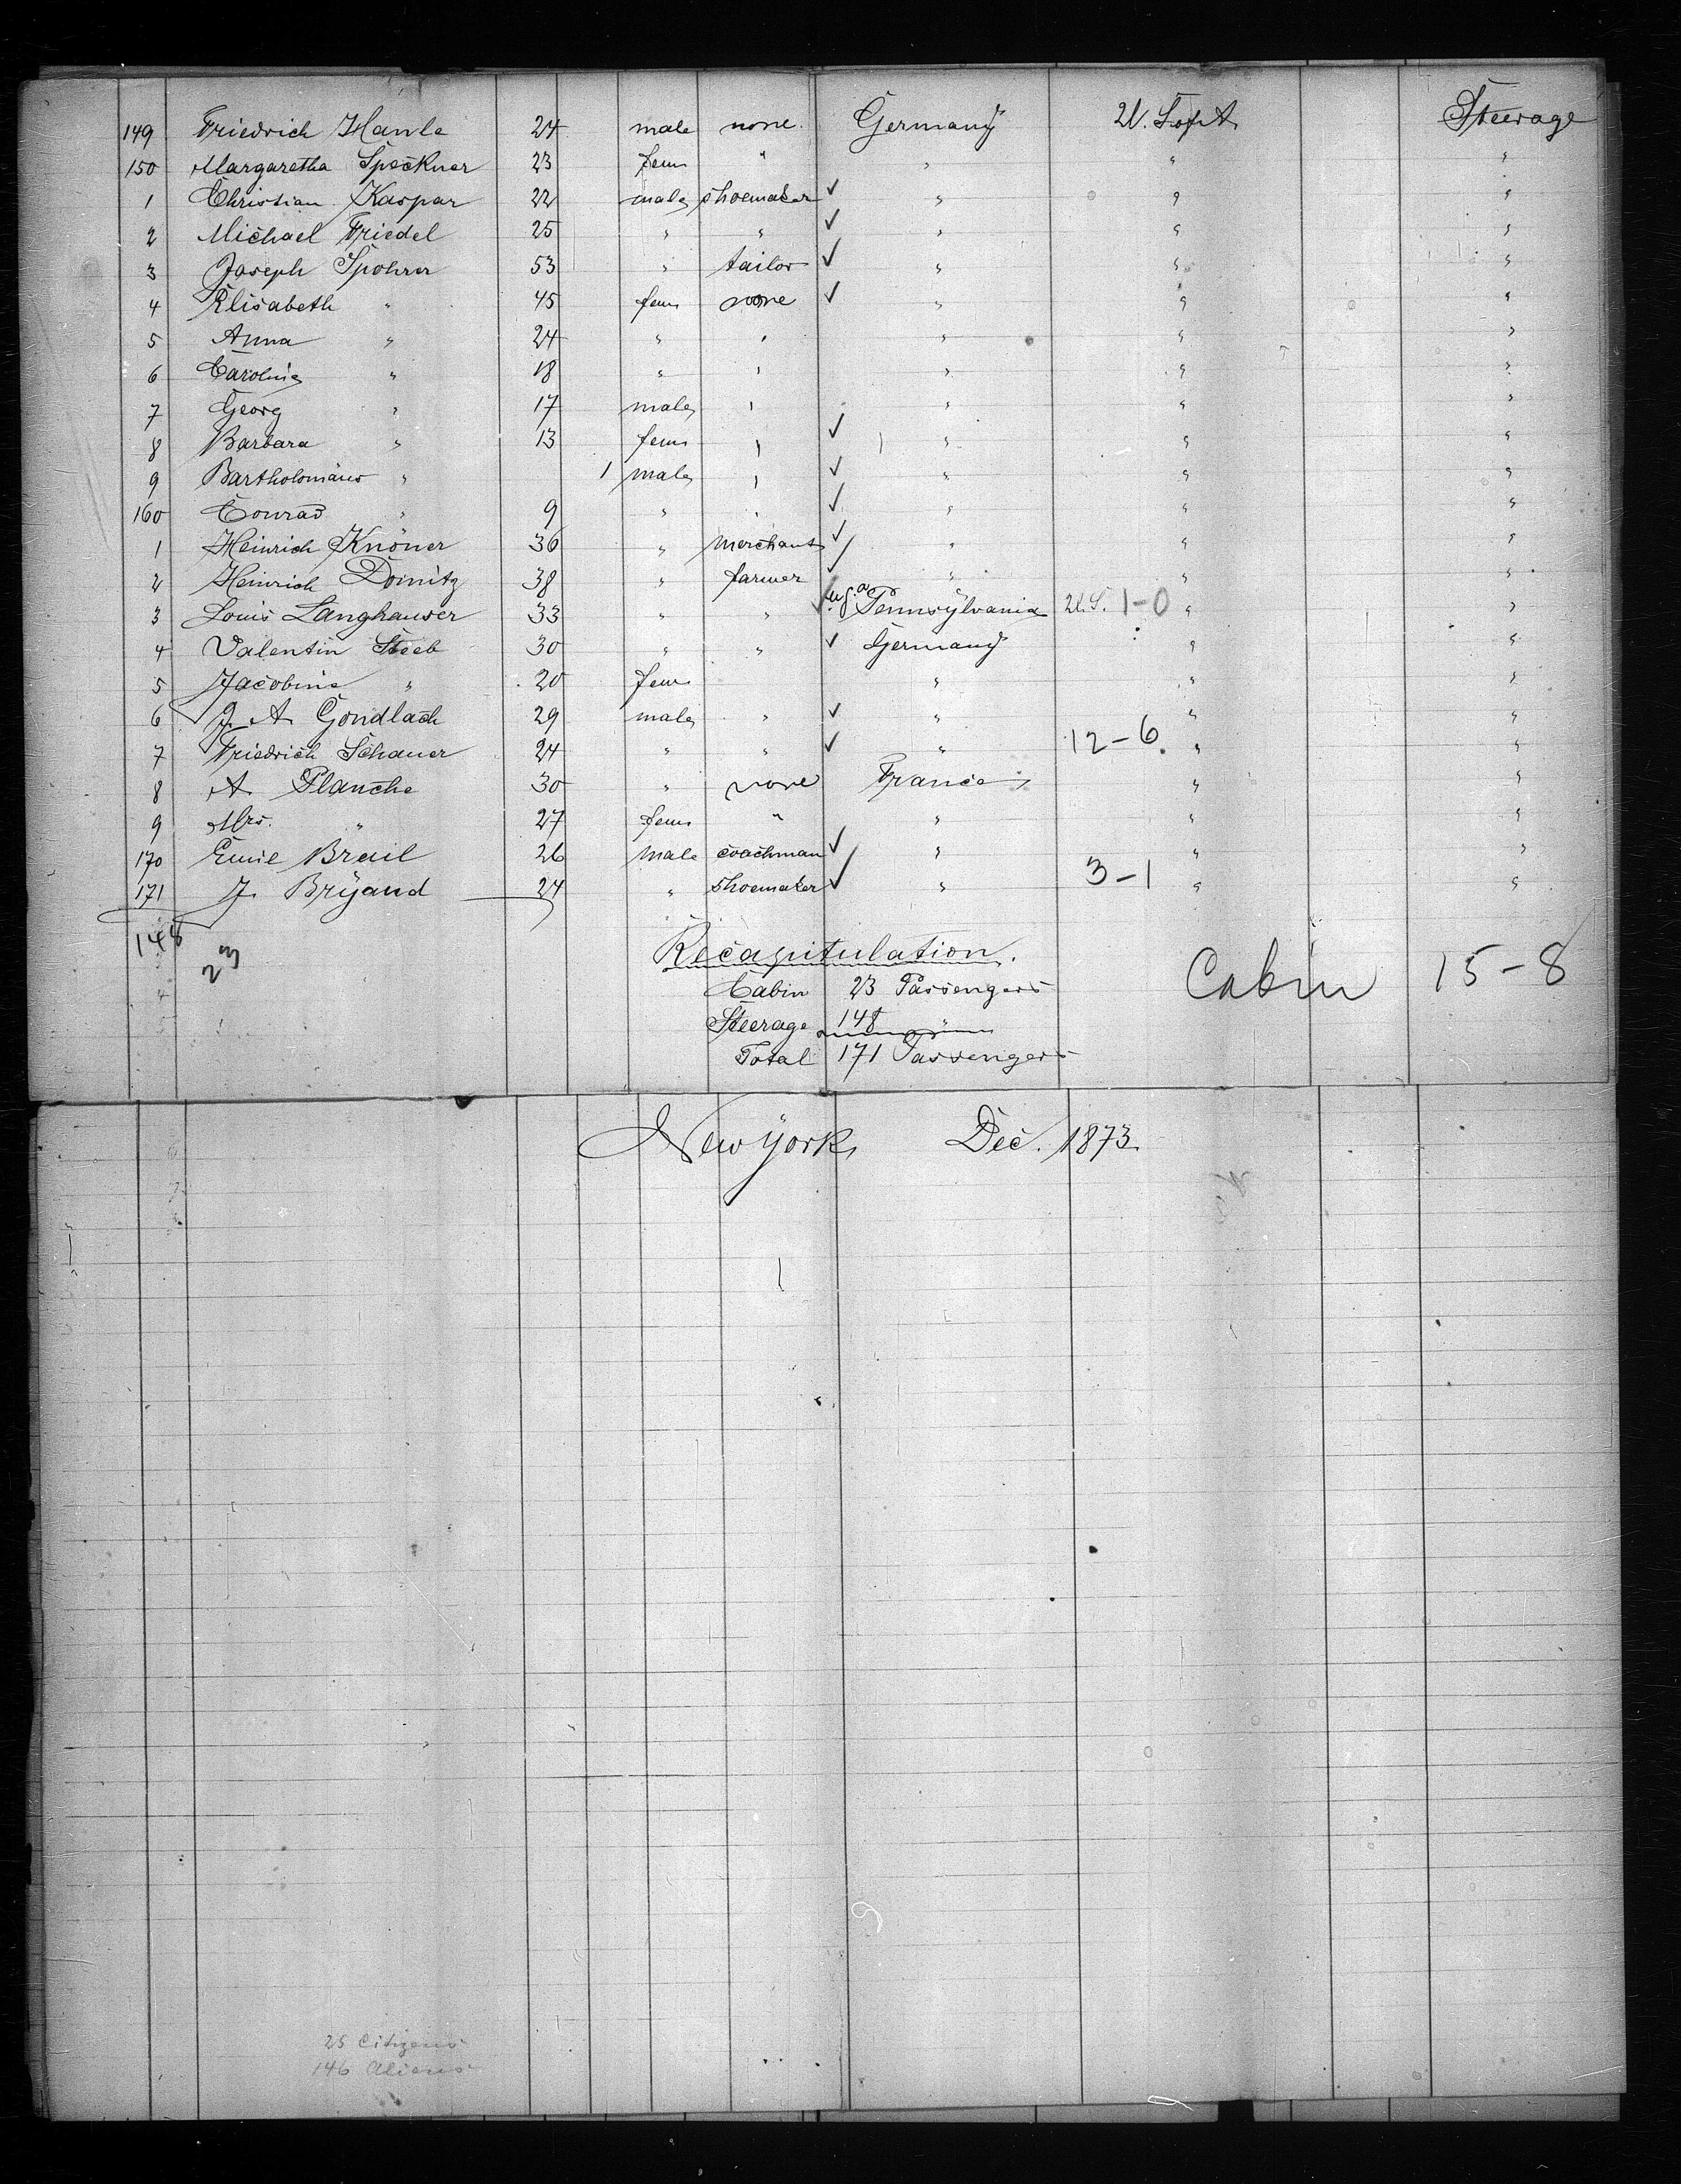 149 Friedrich Hanle 24 male none Germany U. S. of A. Steerage
150 Margaretha Speckner 23 fem " " " "
1 Christian Kaspar 22 male shoemaker ✓ " " "
2 Michael Friedel 25 " " ✓ " " "
3 Joseph Spohrer 53 " tailor ✓ " " "
4 Elisabeth " 45 fem none ✓ " " "
5 Anna " 24 " " " " "
6 Carolina " 18 " " " " "
7 Georg " 17 male " " " "
8 Barbara " 13 fem " ✓ " " "
9 Bartholomäus " 1 male " ✓ " " "
160 Conrad " 9 " " ✓ " " "
1 Heinrich Knöner 36 " merchant ✓ " " "
2 Heinrich Doinitz 38 " farmer ✓ " " "
3 Louis Langhauser 33 " " ✓ Pennsylvania U.S. 1-0 " "
4 Valentin Steeb 30 " " ✓ Germany " "
5 Jacobine " 20 fem " " "
6 J. A. Gondlach 29 male " ✓ " " "
7 Friedrich Schauer 24 " " ✓ " 12-6 " "
8 A. Planche 30 " none France " "
9 Mrs. " 27 fem " " " "
170 Emile Brail 26 male coachman ✓ " " "
171 J. Bryand 24 " shoemaker ✓ " 3-1 " "
148
23
Recapitulation.
Cabin 23 Passengers
Cabin 15-8
Steerage 148 "
Total 171 Passengers
New York Dec. 1873
25 Citizens
146 Aliens